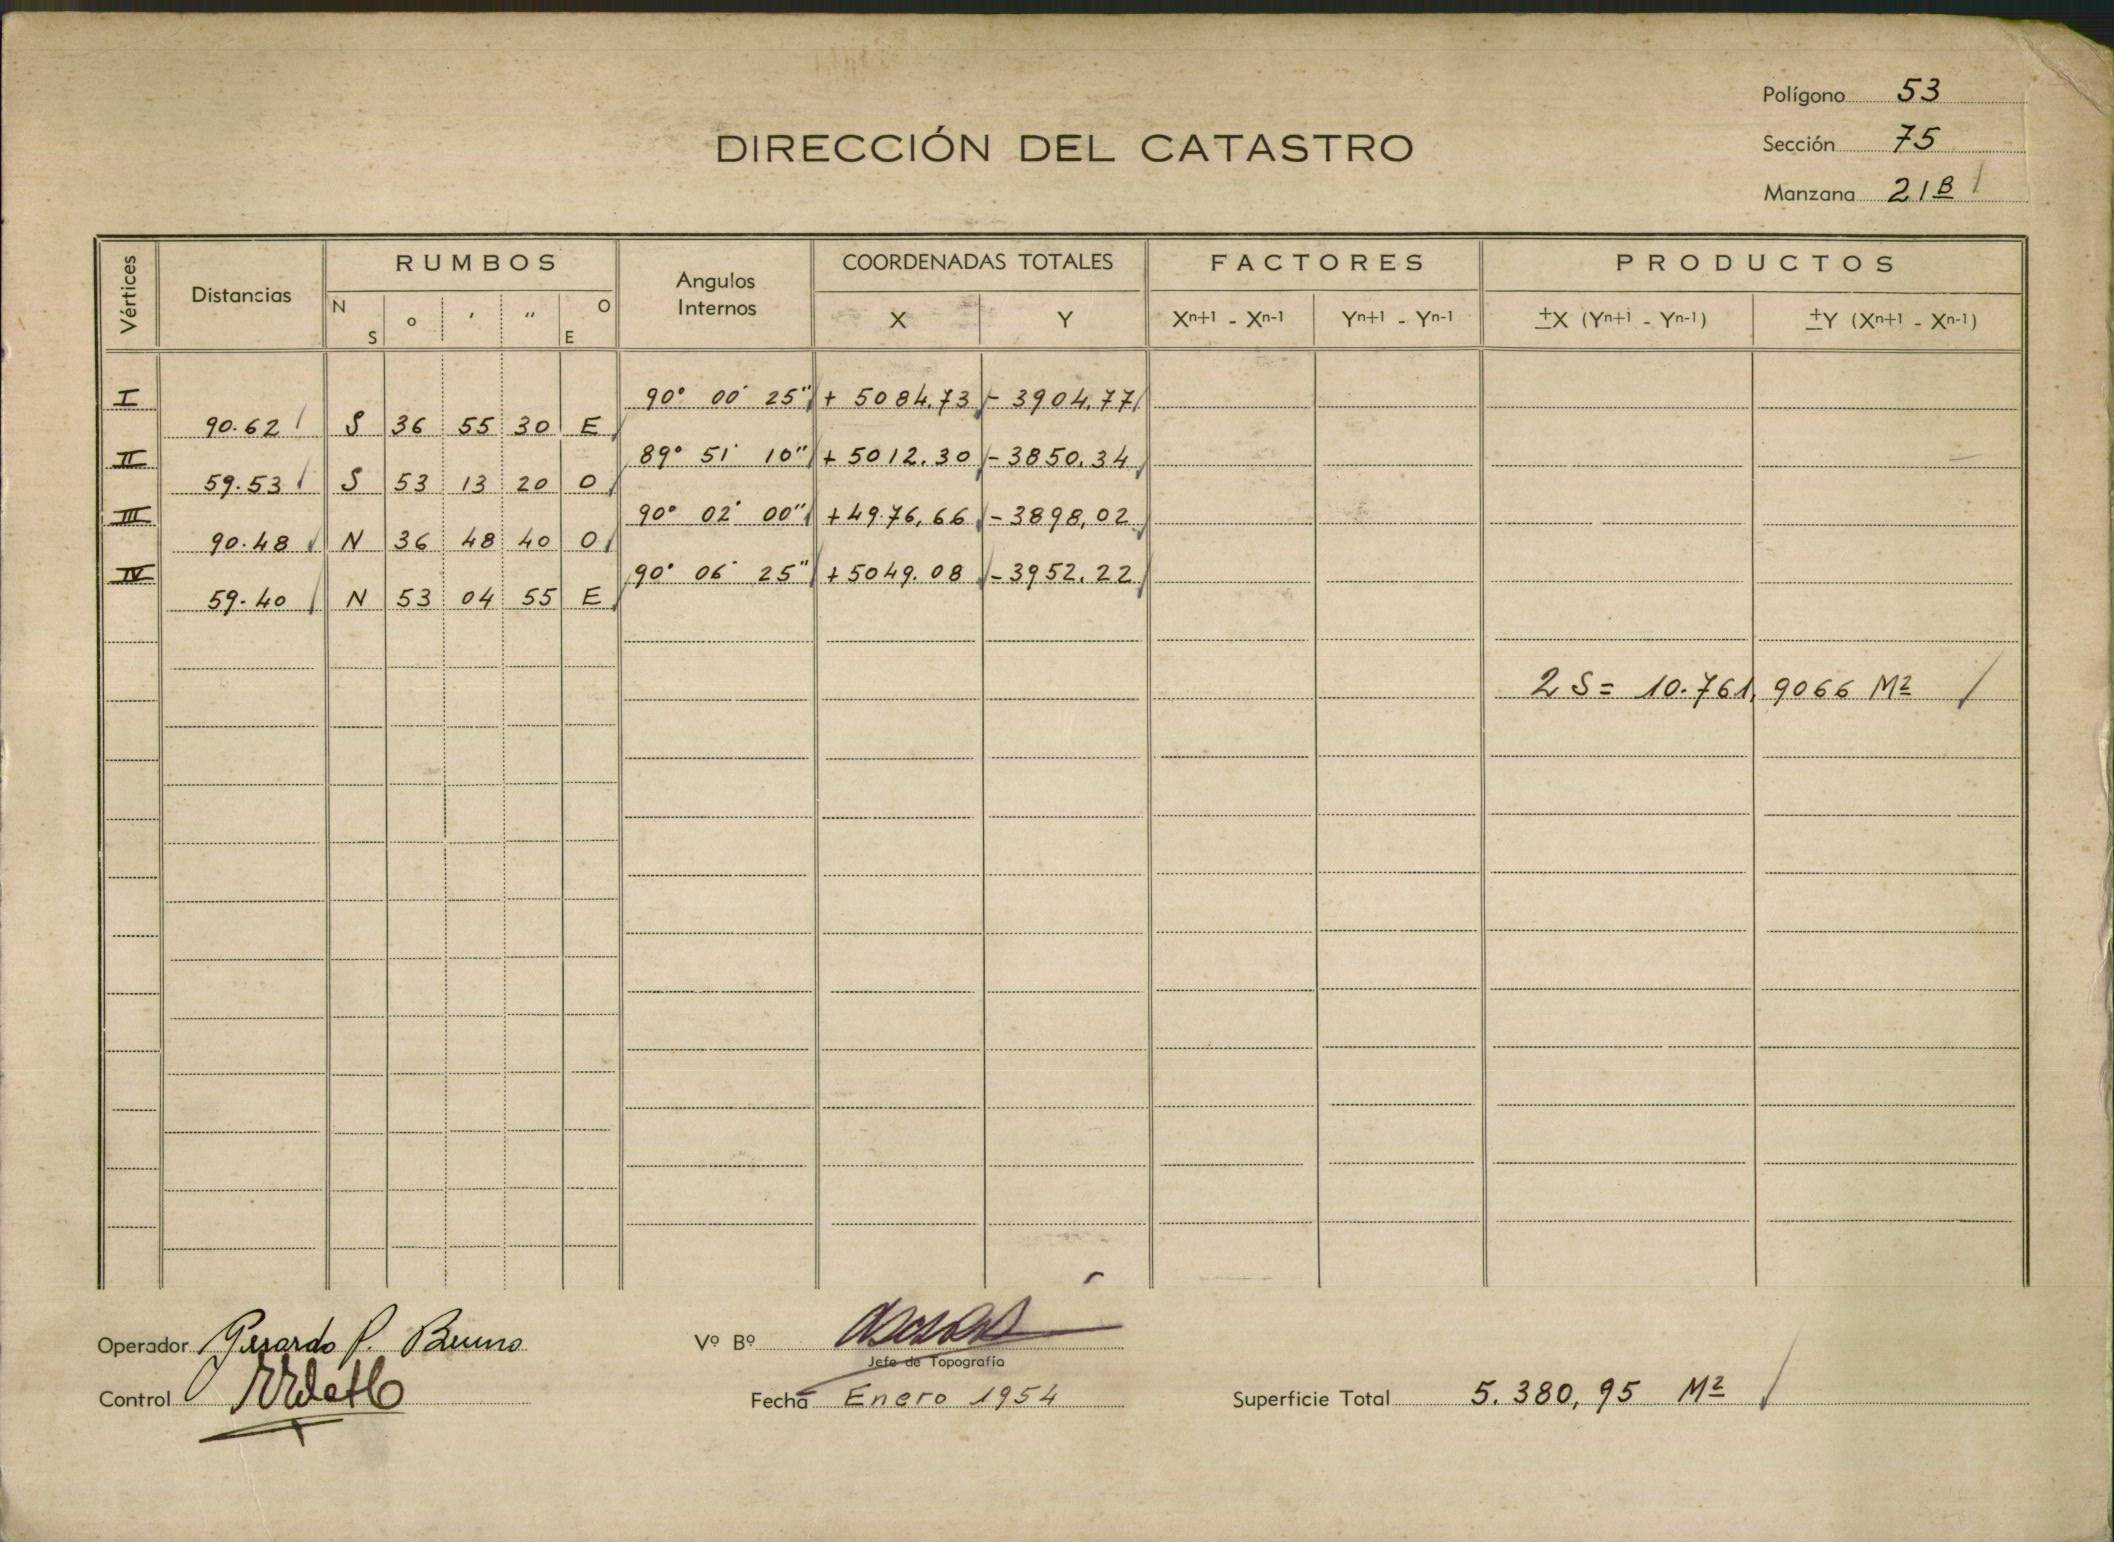 Polígono 53
DIRECCIÓN DEL CATASTRO
Sección 75
Manzana 21B
Vértices Distancias RUMBOS Angulos Internos COORDENADAS TOTALES FACTORES PRODUCTOS
N S o ′ ″ O E X Y Xn+1 - Xn-1 Yn+1 - Yn-1 ±X (Yn+1 - Yn-1) ±Y (Xn+1 - Xn-1)
I 90° 00′ 25″ + 5084.73 - 3904.77
90.62 S 36 55 30 E
II 89° 51′ 10″ + 5012.30 - 3850.34
59.53 S 53 13 20 O
III 90° 02′ 00″ + 4976,66 - 3898,02
90.48 N 36 48 40 O
IV 90° 06′ 25″ + 5049.08 - 3952.22
59.40 N 53 04 55 E
2 S = 10.761,9066 M2
Operador Gerardo P. Bruno
Vº Bº
Jefe de Topografía
Control
Fecha Enero 1954
Superficie Total 5.380,95 M2